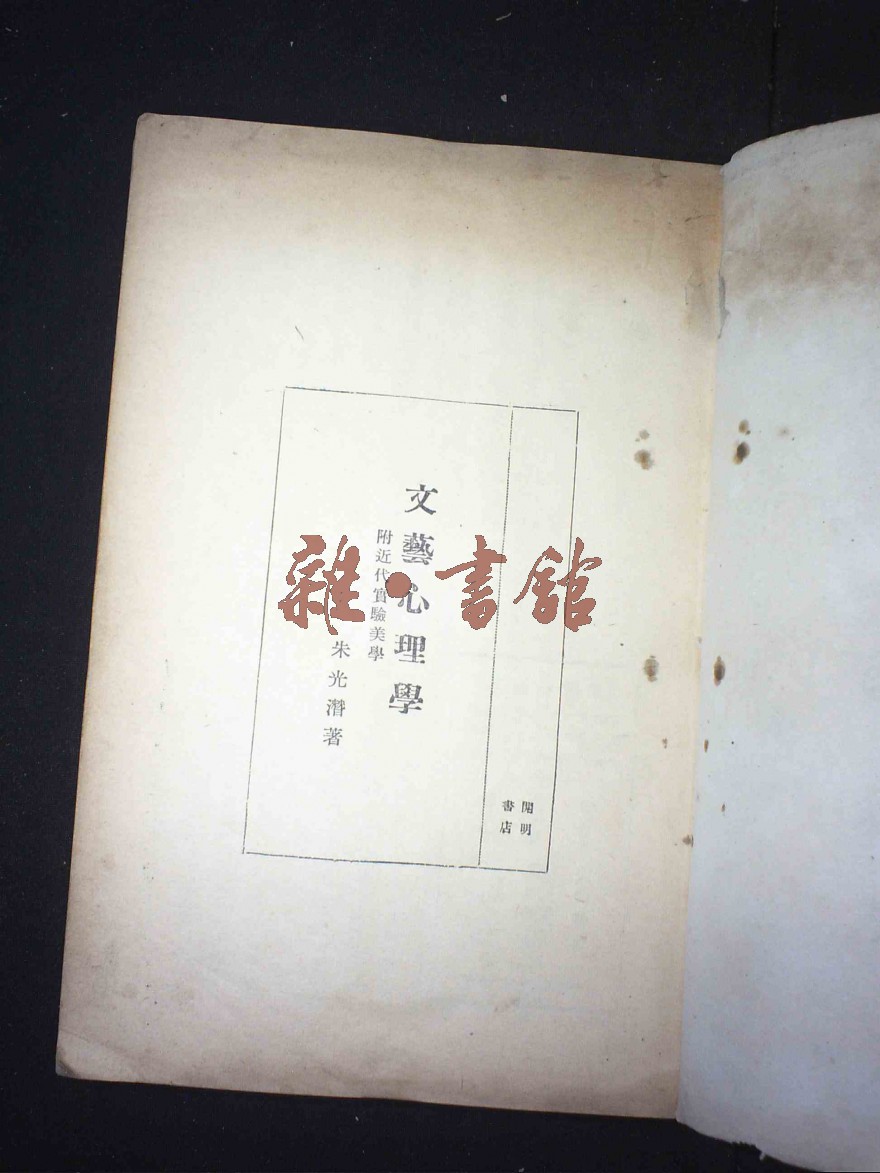 文藝心理學
附近代實驗美學
朱光潛著
開明
書店
雜·書館